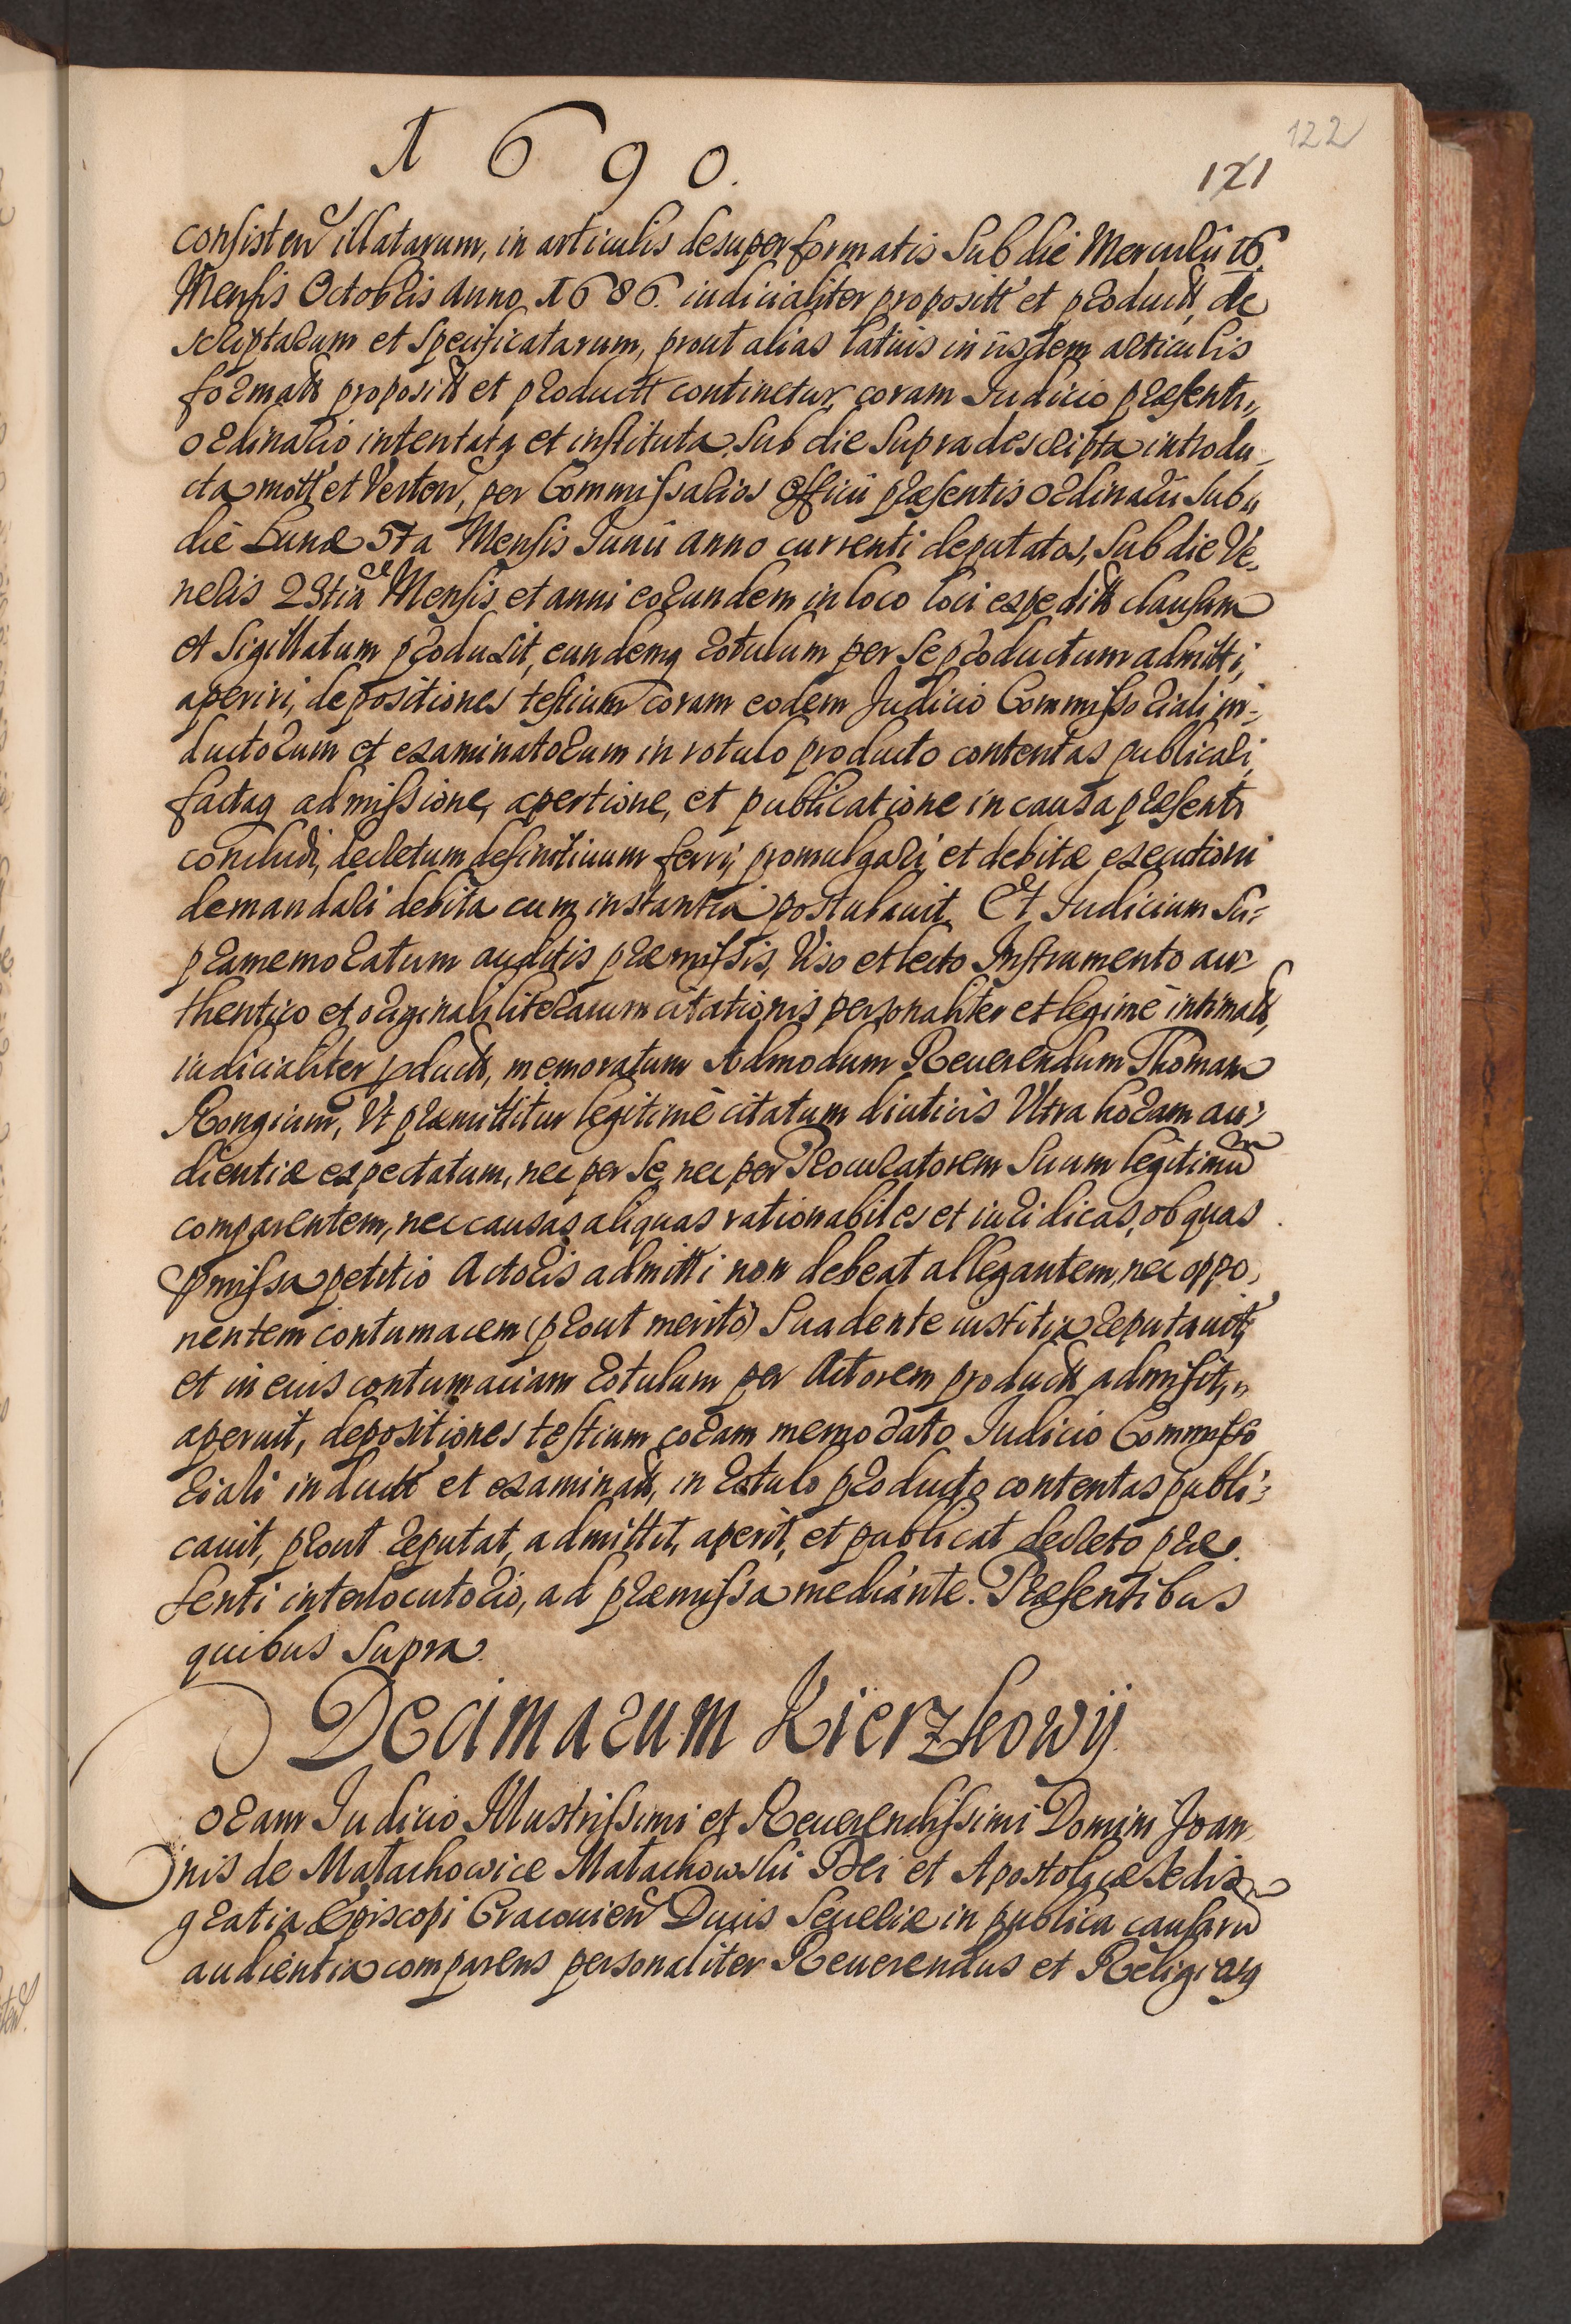 1690.
122
121
consisten illatarum, in articulis desuper formatis Sub die Mercurii 16.
Mensis Octobris Anno 1686. iudicialiter propositt et productt, de
scriptarum et Specificatarum, prout alias latius in iisdem articulis
formatt propositt et productt continetur, coram Iudicio præsenti,,
ordinario intentata et instituta, Sub die Supradescripta introdu-
cta mott et Verten, per Commissarios Officii præsentis ordinarii Sub,,
die Lunæ 5ta Mensis Iunii anno currenti deputatos, Sub die Ve-
neris 23tia Mensis et anni eorundem in loco loci expeditt clausum
et Sigillatum produxit, eundemq rotulum per Se productum admitti,
aperiri, depositiones testium coram eodem Judicio Commissoriali in-
ductorum et examinatorum in rotulo producto contentas publicari,
factaq admissione, apertione, et publicatione in causa præsenti
concludi, decretum definitiuum ferri, promulgari, et debitæ executioni
demandari debita cum instantia postulauit. Et Iudicium Su-
pramemoratum auditis præmissis, Viso et lecto Instrumento au-
thentico et originali literarum citationis personaliter et legimè intimatt,
iudicialiter pductt, memoratum Admodum Reuerendum Thomam
Rongium, Vt præmittitur legitimè citatum diutius Vltra horam au-
dientiæ expectatum, nec per Se, nec per Procuratorem Suum legitimũ
comparentem, nec causas aliquas rationabiles et iuridicas, ob quas
pmissa petitio Actoris admitti non debeat allegantem, nec oppo,
nentem contumacem (prout meritò) Suadente iustitia reputauit,
et in eius contumaciam rotulum per Actorem productt admisit,,
aperuit, depositiones testium coram memorato Iudicio Commisso
riali inductt et examinatt, in rotulo producto contentas publi-
cauit, prout reputat, admittit, aperit, et publicat decreto præ-
senti interlocutorio, ad præmissa mediante. Præsentibus
quibus Supra.
Decimarum Kierzkowÿ.
Coram Iudicio Illustrissimi et Reuerendissimi Domini Joan
nis de Małachowice Małachowski Dei et Apostolicæ Sedis
gratia Episcopi Cracouien Ducis Seueriæ in publica causarũ
audientia comparens personaliter Reuerendus et Religiosq